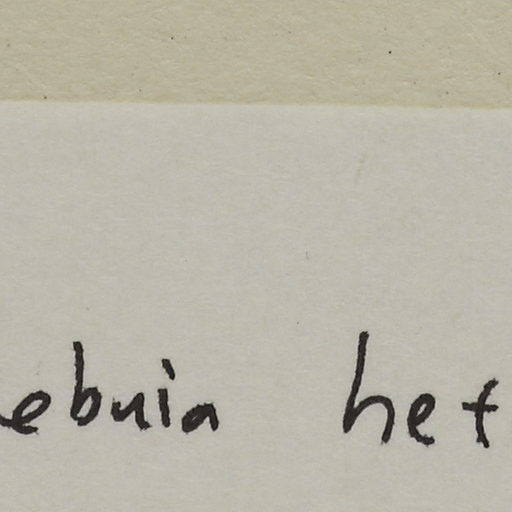 ebuia het